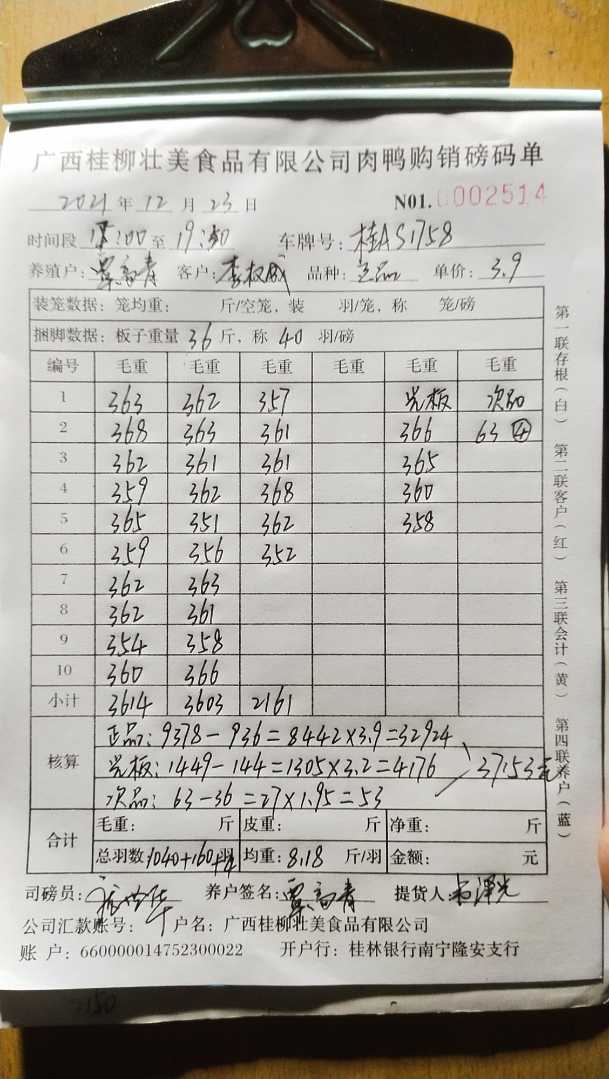 广西桂柳壮美食品有限公司肉鸭购销磅码单
2021 年 12 月 23 日 N01. 0002514
时间段 :00 至 19:30 车牌号: 桂AS1758
养殖户: 覃高青 客户: 李权威 品种: 正品 单价: 3.9
装笼数据: 笼均重: 斤/空笼, 装 羽/笼, 称 笼/磅
捆脚数据: 板子重量 36 斤, 称 40 羽/磅
编号 毛重 毛重 毛重 毛重 毛重 毛重
1 363 362 357 光板 次品
2 368 363 361 366 63 ④
3 362 361 361 365
4 359 362 368 360
5 365 351 362 358
6 359 356 352
7 362 363
8 362 361
9 354 358
10 360 366
小计 3614 3603 2161
核算
正品: 9378-936=8442×3.9=32924
光板: 1449-144=1305×3.2=4176
次品: 63-36=27×1.95=53
37153元
合计
毛重: 斤 皮重: 斤 净重: 斤
总羽数 1040+160+4 羽 均重: 8.18 斤/羽 金额: 元
司磅员: 养户签名: 覃高青 提货人:
公司汇款账号: 户名: 广西桂柳壮美食品有限公司
账 户: 660000014752300022 开户行: 桂林银行南宁隆安支行
第一联存根(白)
第二联客户(红)
第三联会计(黄)
第四联养户(蓝)